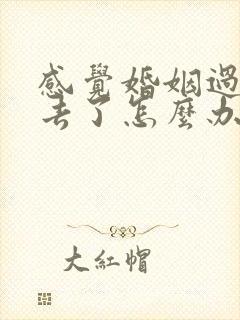 感覺婚姻過
去了怎麼办
大紅帽